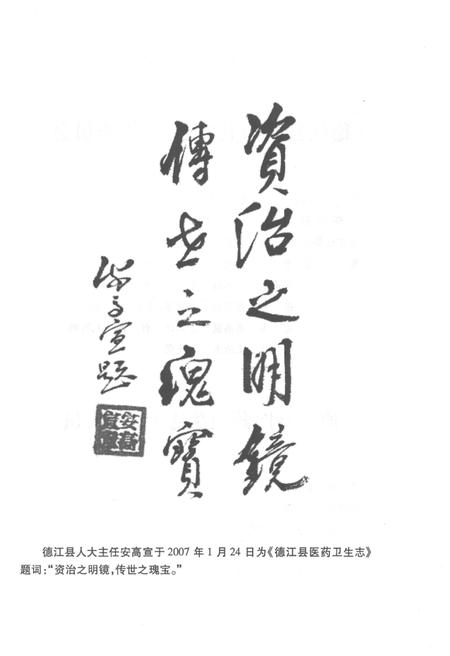 資治之明鏡
傳世之瑰寶
安高宣題
德江县人大主任安高宣于 2007 年 1 月 24 日为《德江县医药卫生志》
题词:“资治之明镜,传世之瑰宝。”